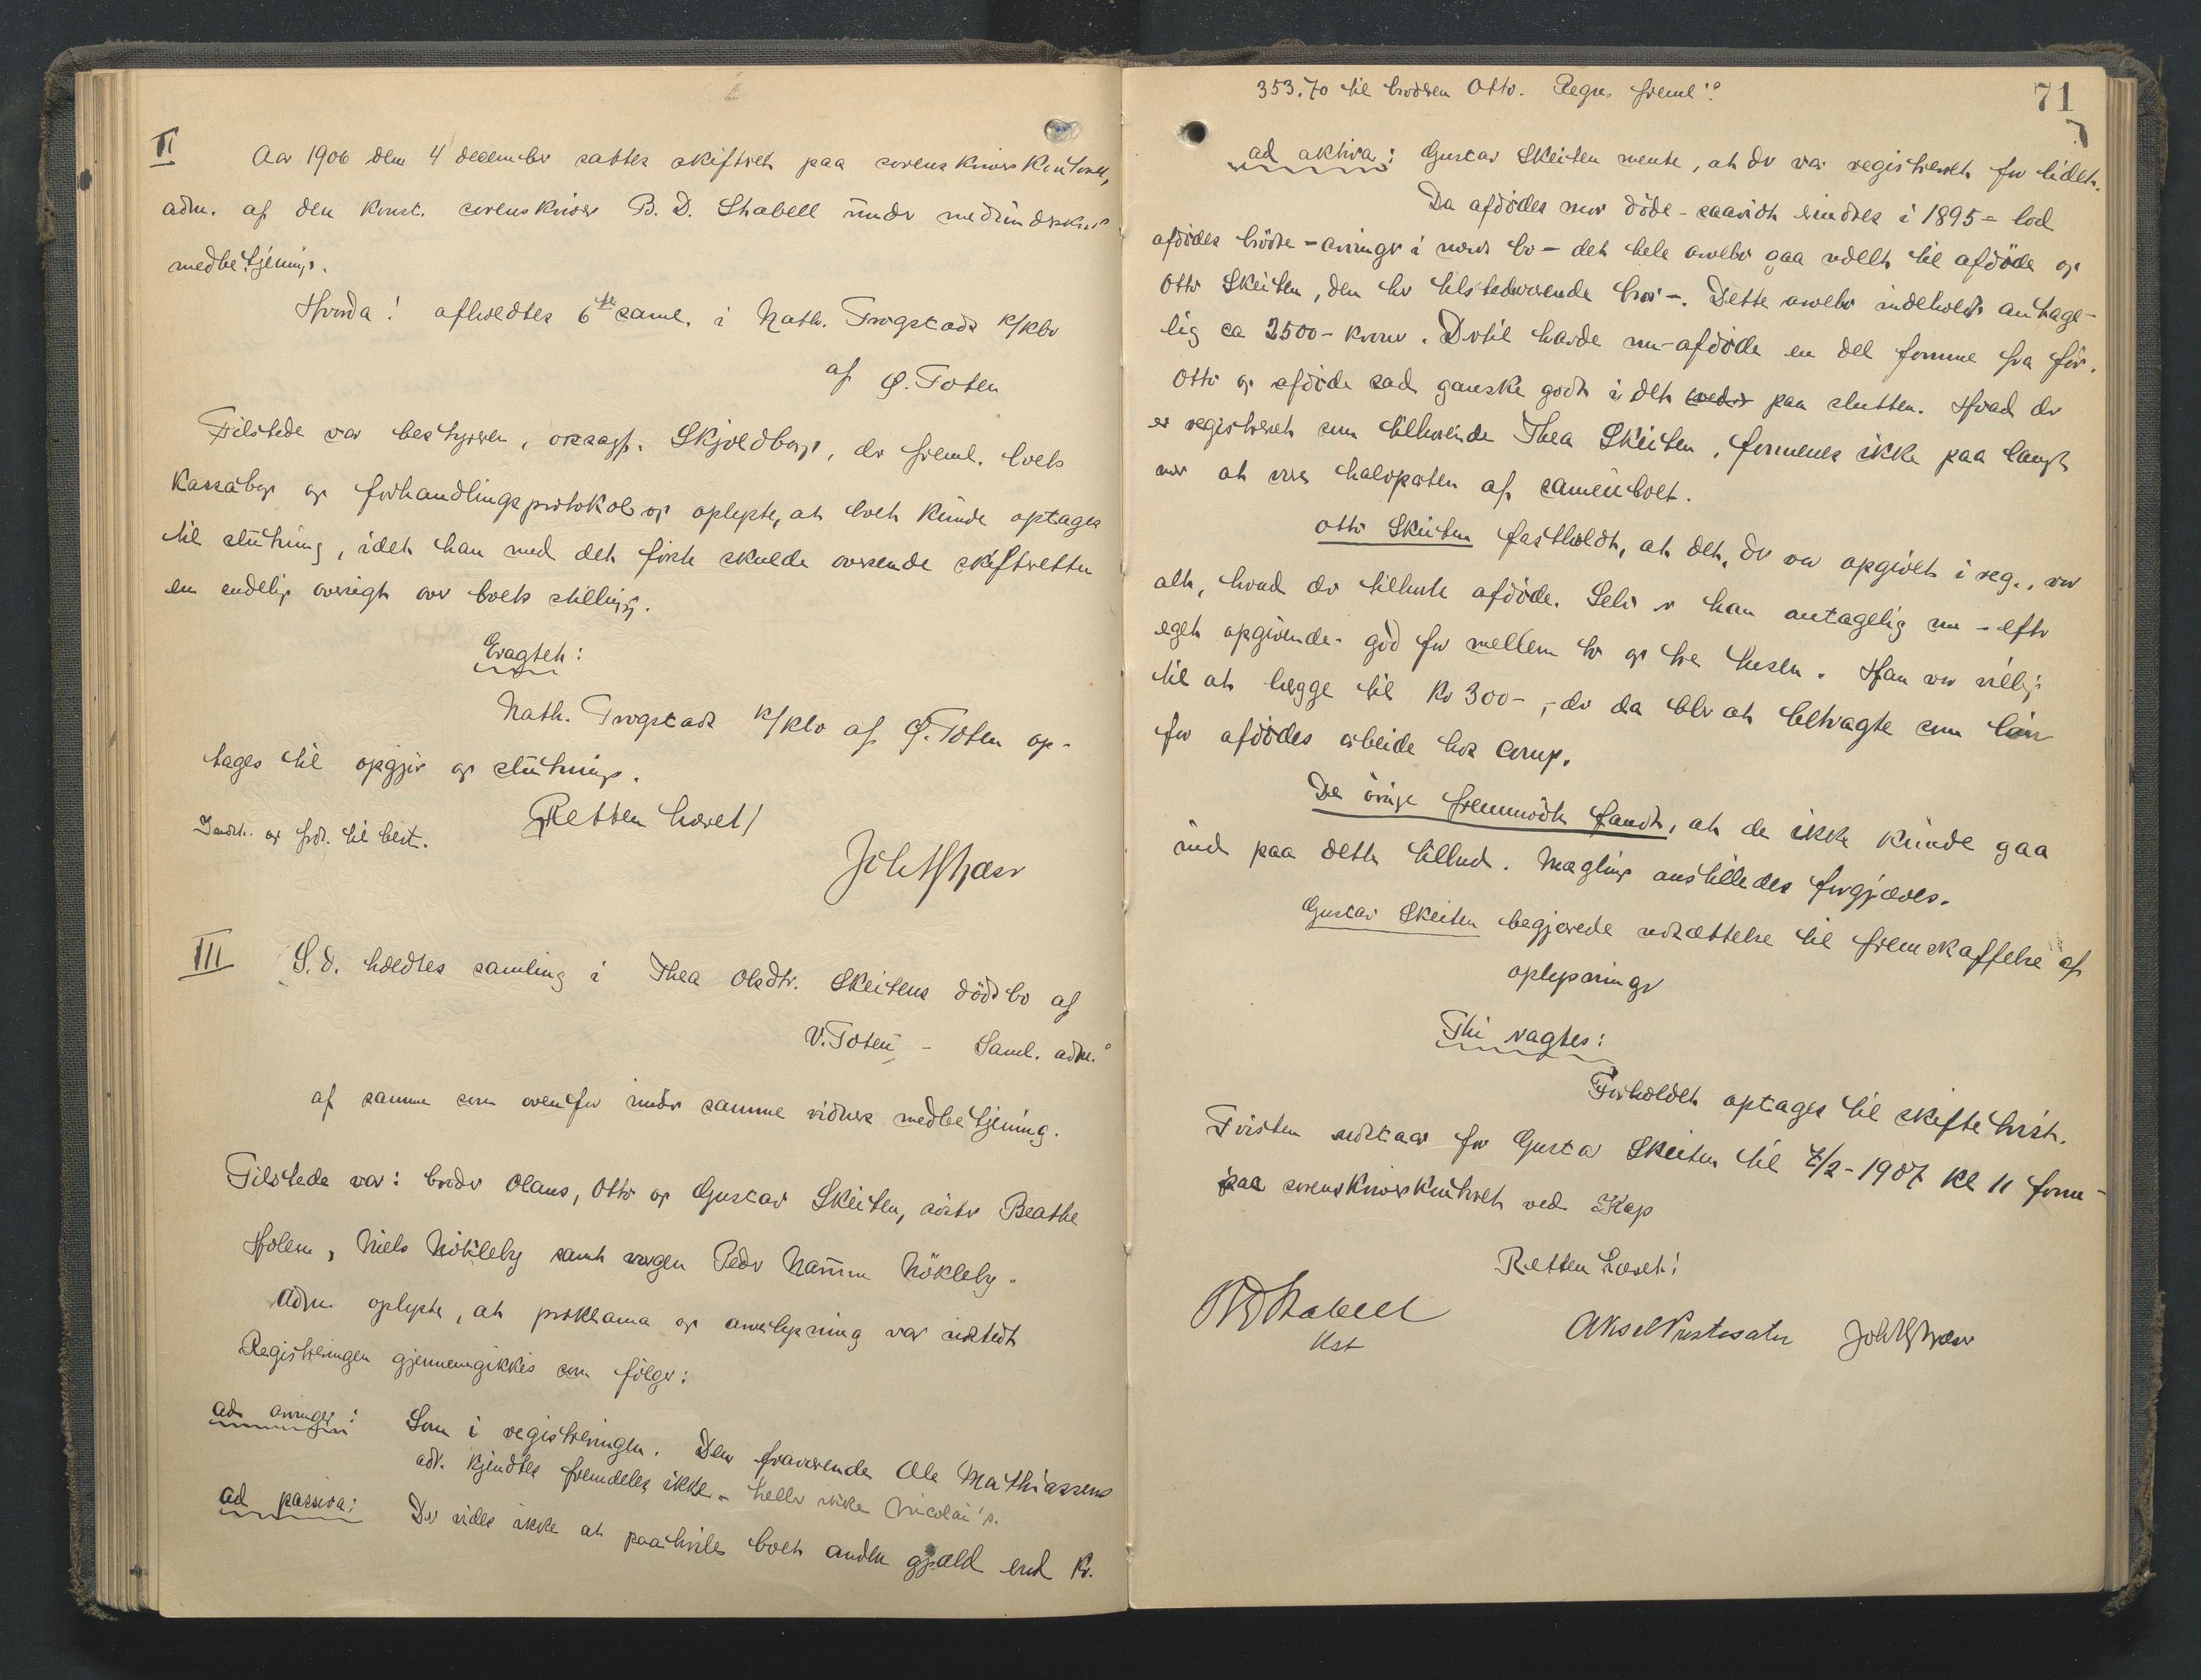 II
Aar 1906 den 4 december sattes skifteret paa sorenskriverkontoret,
adm. af den konst. sorenskriver B. D. Stabell under medunderskrs
medbetjening.
Hvorda! afholdtes 6te saml. i Nath. Trogstads k/kbo
af Ø. Toten
Tilstede var bestyreren, orsagf. Skjoldborg, der freml. boets
kassabog og forhandlingsprotokol og oplyste, at boet kunde optages
til slutning, idet han med det første skulde oversende skifteretten
en endelig oversigt over boets stilling.
Eragtet:
Nath. Trogstads k/kbo af Ø. Toten op-
tages til opgjør og slutning.
Retten hævet/
Indst. og frd. til best.
III
S. D. holdtes samling i Thea Olsdtr. Skeitens dödsbo af
V. Toten - Saml. adm.
af samme som ovenfor under samme vidners medbetjening.
Tilstede var: brødr Olaus, Otto og Gustav Skeiten, søstr Beathe
Holen, Niels Nökleby samt vergen Pedr Hamm Nökleby.
Adm. oplyste, at proklama og arvelysning var udstedt
Registreringen gjennemgikkes som følger:
ad arvinger: Som i registreringen. Den fraværende Ole Mathiassens
adr. kjendtes fremdeles ikke - heller ikke Nicolai's.
ad passiva: Der vides ikke at paahvile boet anden gjæld end kr.
71
353.70 til brodren Otto. Regn. freml.
ad aktiva: Gustav Skeiten mente, at der var registreret for lidet.
Da afdödes mor döde - saavidt erindres i 1895 - lod
afdödes brödre - arvinger i mors bo - det hele arvebo gaa udelt til afdöde og
Otto Skeiten, den her tilstedeværende bror -. Dette arvebo indeholdt antage-
lig ca 2500 - kroner. Dertil havde nu-afdöde en del formue fra för.
Otto og afdöde sad ganske godt i det paa slutten. Hvad der
er registreret som tilhørende Thea Skeiten, formenes ikke paa langt
nær at være halvparten af sameieboet.
Otto Skeiten fastholdt, at det, der var opgivet i reg., var
alt, hvad der tilhørte afdöde. Selv er han antagelig nu - efter
eget opgivende - god for mellem to og tre tusen. Han var villig
til at lægge til kr 300 -, der da blev at betragte som løn
for afdödes arbeide hos comp.
De øvrige fremmødte fandt, at de ikke kunde gaa
ind paa dette tilbud. Mægling anstilledes forgjæves.
Gustav Skeiten begjærede udsættelse til fremskaffelse af
oplysninger
Thi ragtes:
Forholdet optages til skiftetvist.
Tvisten udstaar for Gustav Skeiten til 7/2 - 1907 kl 11 form-
paa sorenskriverkontoret ved Kap
Retten hævet!
BDStabell
Kst